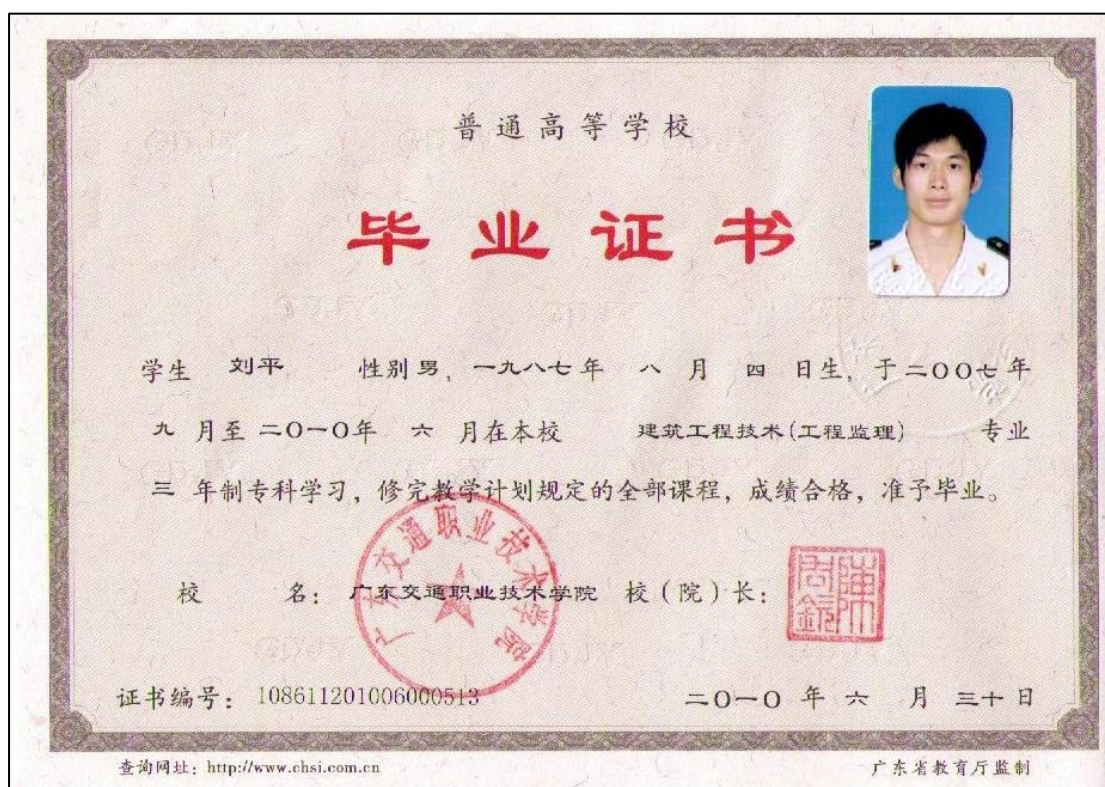 普通高等学校
毕业证书
学生 刘平 性别 男，一九八七年 八 月 四 日生，于二〇〇七年
九 月至 二〇一〇年 六 月在本校 建筑工程技术(工程监理) 专业
三 年制专科学习，修完教学计划规定的全部课程，成绩合格，准予毕业。
广东交通职业技术学院
校 名：广东交通职业技术学院 校（院）长：
证书编号：108611201006000513 二〇一〇 年 六 月 三十 日
查询网址：http://www.chsi.com.cn 广东省教育厅监制